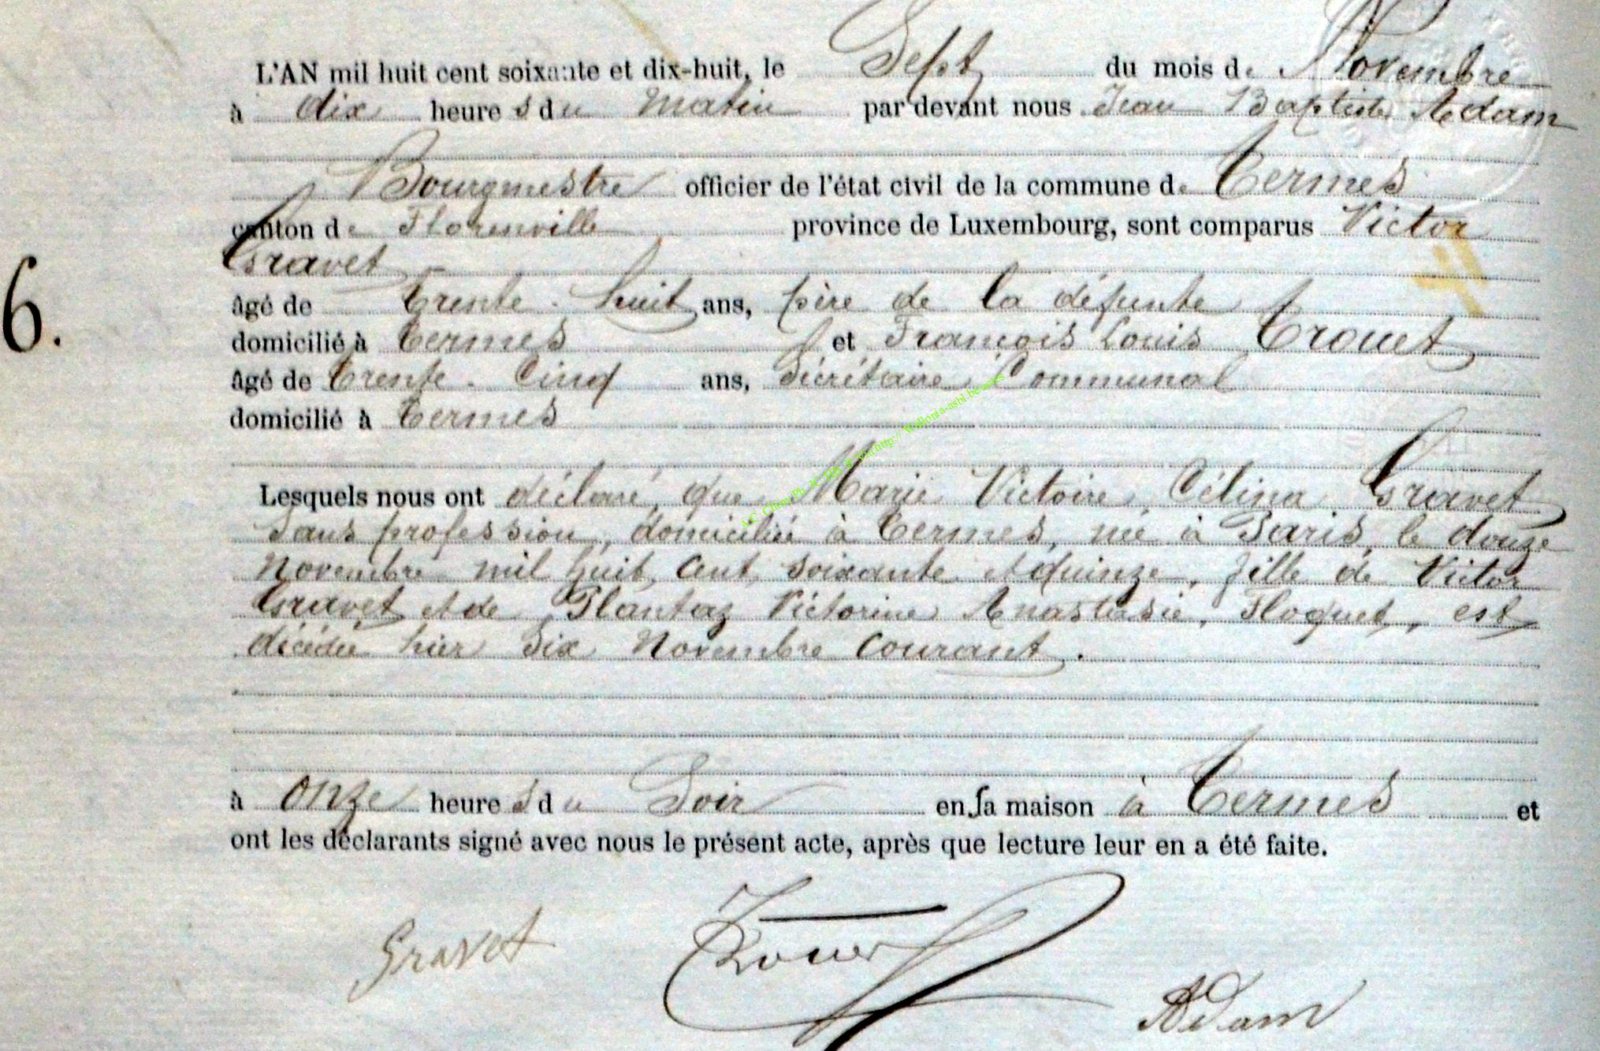 L'AN mil huit cent soixante et dix-huit, le Sept du mois de Novembre
à dix heures du Matin par devant nous Jean Baptiste Adam
Bourgmestre officier de l'état civil de la commune de Termes
canton de Florenville province de Luxembourg, sont comparus Victor
Gravet
âgé de Trente-huit ans, père de la défunte
domicilié à Termes et François Louis Trouet
âgé de Trente-Cinq ans, Sécrétaire Communal
domicilié à Termes
6.
Lesquels nous ont déclaré que Marie Victoire Célina Gravet
Sans profession, domiciliée à Termes, née à Paris le douze
Novembre mil huit Cent soixante et quinze, fille de Victor
Gravet et de Plantaz Victorine Anastasie, Floquet, est
décédée hier Six Novembre Courant.
à onze heures du Soir en sa maison à Termes et
ont les déclarants signé avec nous le présent acte, après que lecture leur en a été faite.
Gravet Trouet
Adam